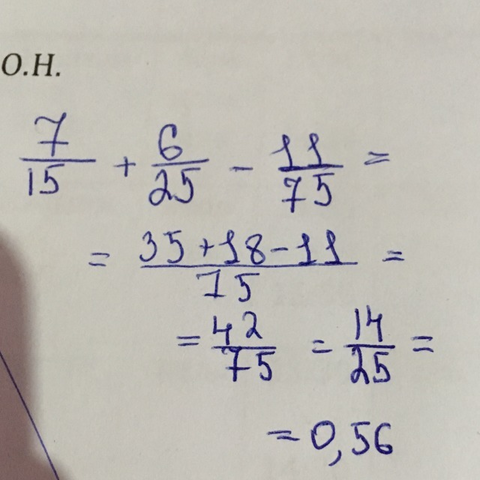 О.Н.
7/15 + 6/25 - 11/75 =
= 35+18-11/75 =
= 42/75 = 14/25 =
= 0,56